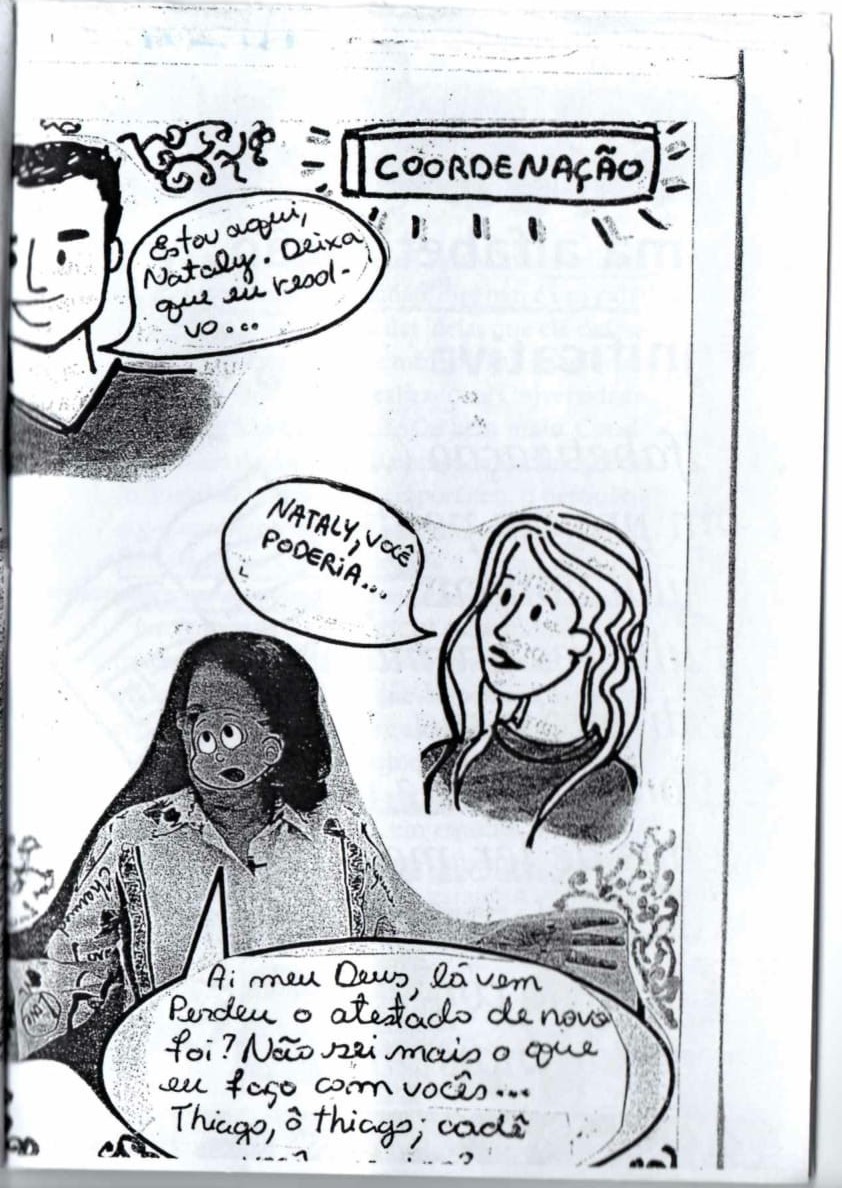 COORDENAÇÃO
Estou aqui,
Nataly. Deixa
que eu resol-
vo...
NATALY, VOCÊ
PODERIA...
Ai meu Deus, lá vem
Perdeu o atestado de novo
foi? Não sei mais o que
eu faço com vocês...
Thiago, ô thiago; cadê